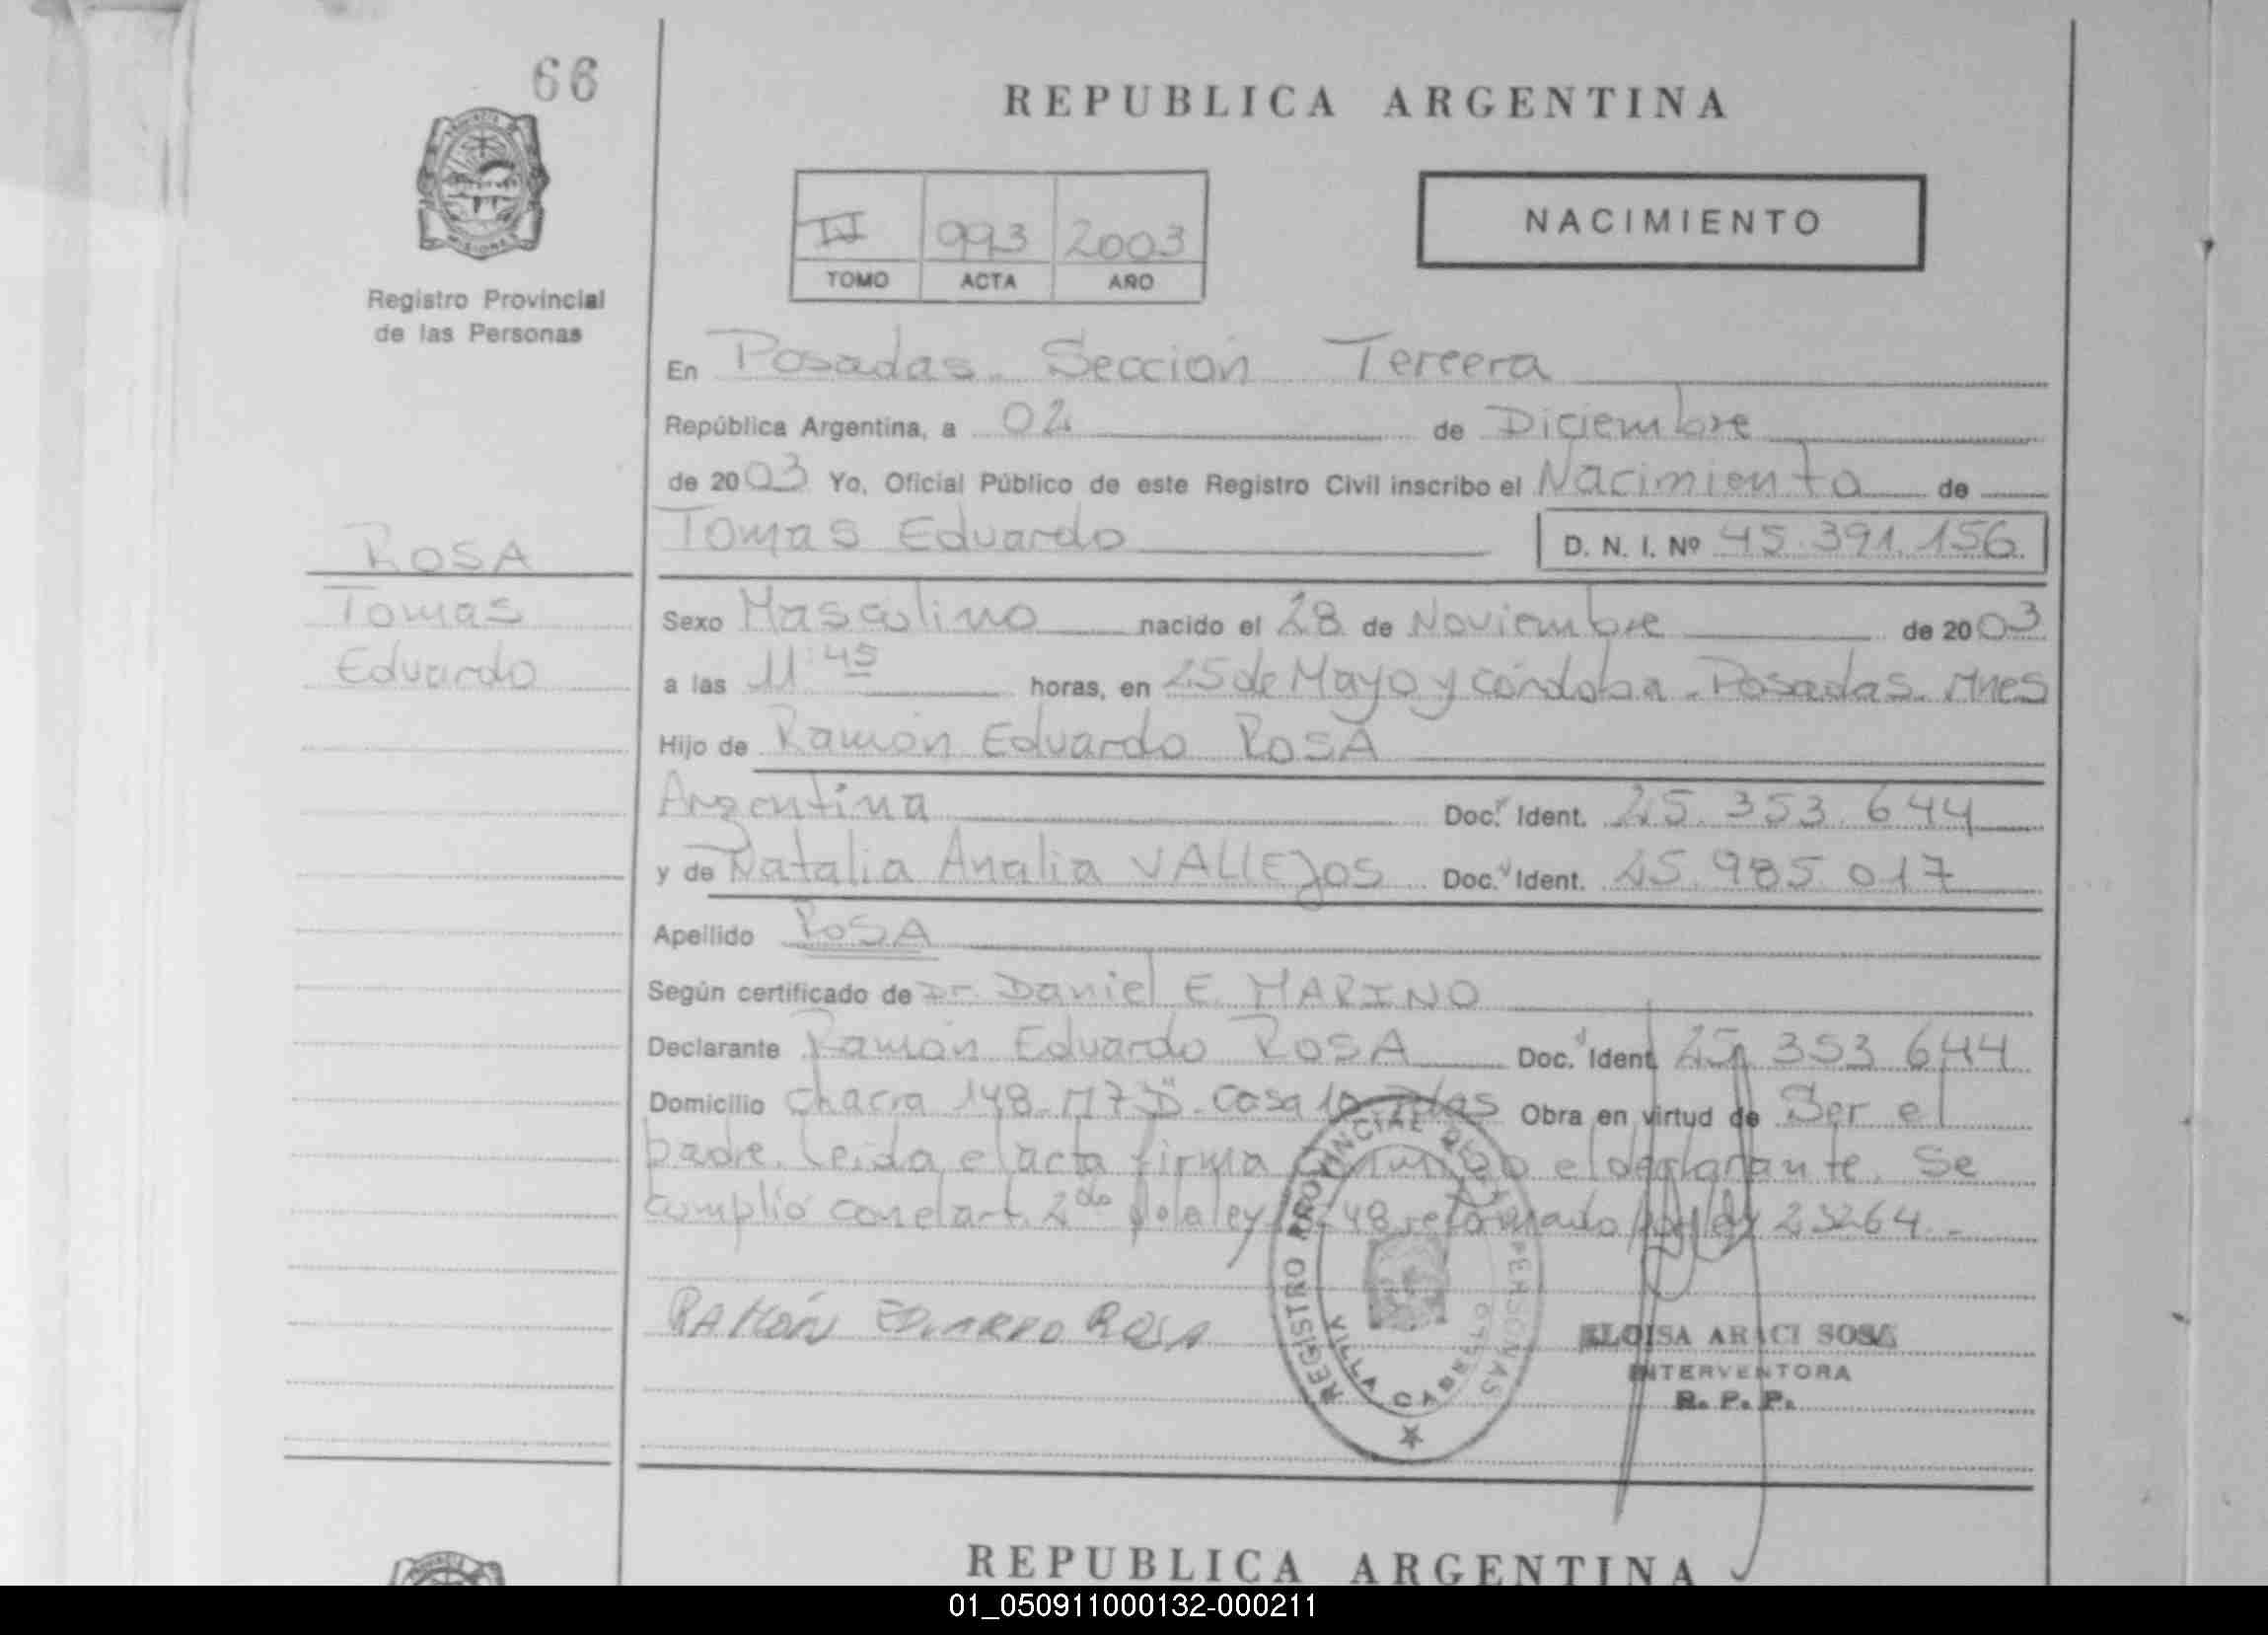 66
REPUBLICA ARGENTINA
PROVINCIA DE
MISIONES
Registro Provincial
de las Personas
II 993 2003
TOMO ACTA AÑO
NACIMIENTO
En Posadas. Sección Tercera
República Argentina, a 02 de Diciembre
de 2003 Yo, Oficial Público de este Registro Civil inscribo el Nacimiento de
Tomas Eduardo D. N. I. Nº 45.391.156
ROSA
Tomas
Eduardo
Sexo Masculino nacido el 28 de Noviembre de 2003
a las 11:45 horas, en 25 de Mayo y córdoba. Posadas. Mnes
Hijo de Ramón Eduardo ROSA
Argentina Doc. Ident. 25.353.644
y de Natalia Analia VALLEJOS Doc. Ident. 25.985.017
Apellido ROSA
Según certificado de Dr. Daniel E. MARINO
Declarante Ramón Eduardo ROSA Doc. Ident. 25.353.644
Domicilio chacra 148. M7 Casa 10 Obra en virtud de Ser el
padre. Leida el acta firma conmigo el declarante. Se
cumplió con el art. 2do de la ley reformado por ley 23264.-
RAMÓN EDUARDO ROSA
REGISTRO PROVINCIAL DE LAS PERSONAS
VILLA CABELLO
ELOISA ARACI SOSA
INTERVENTORA
R. P. P.
REPUBLICA ARGENTINA
01_050911000132-000211